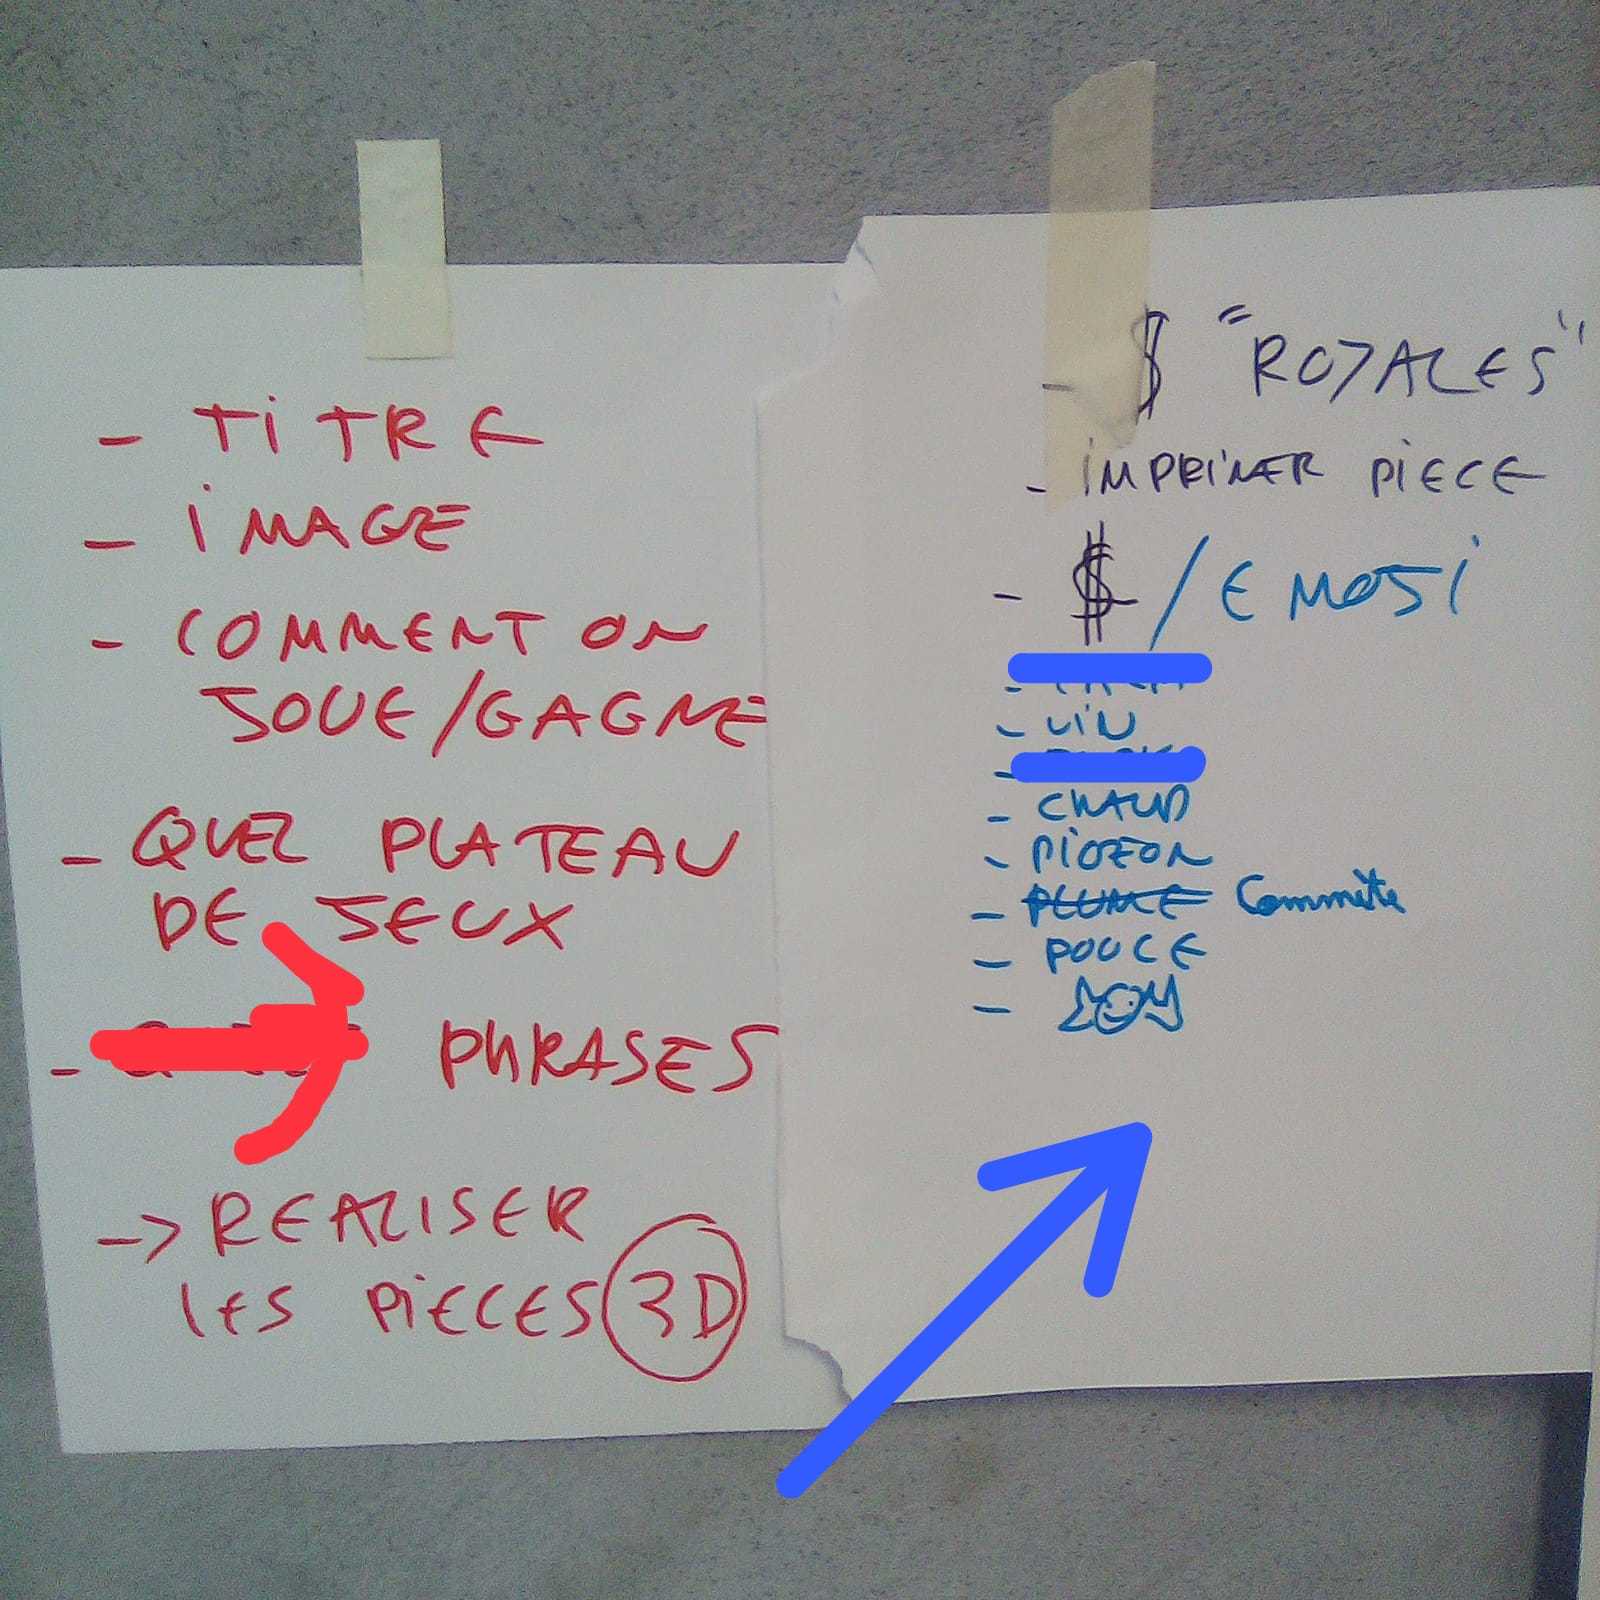 - TITRE
- IMAGE
- COMMENT ON
JOUE/GAGNE
- QUEL PLATEAU
DE JEUX
- PHRASES
-> REALISER
LES PIECES 3D
- $ "ROYALES"
- IMPRIMER PIECE
- $/EMOJI
- VIN
- CHAUD
- PIGEON
- PLUME Commète
- POUCE